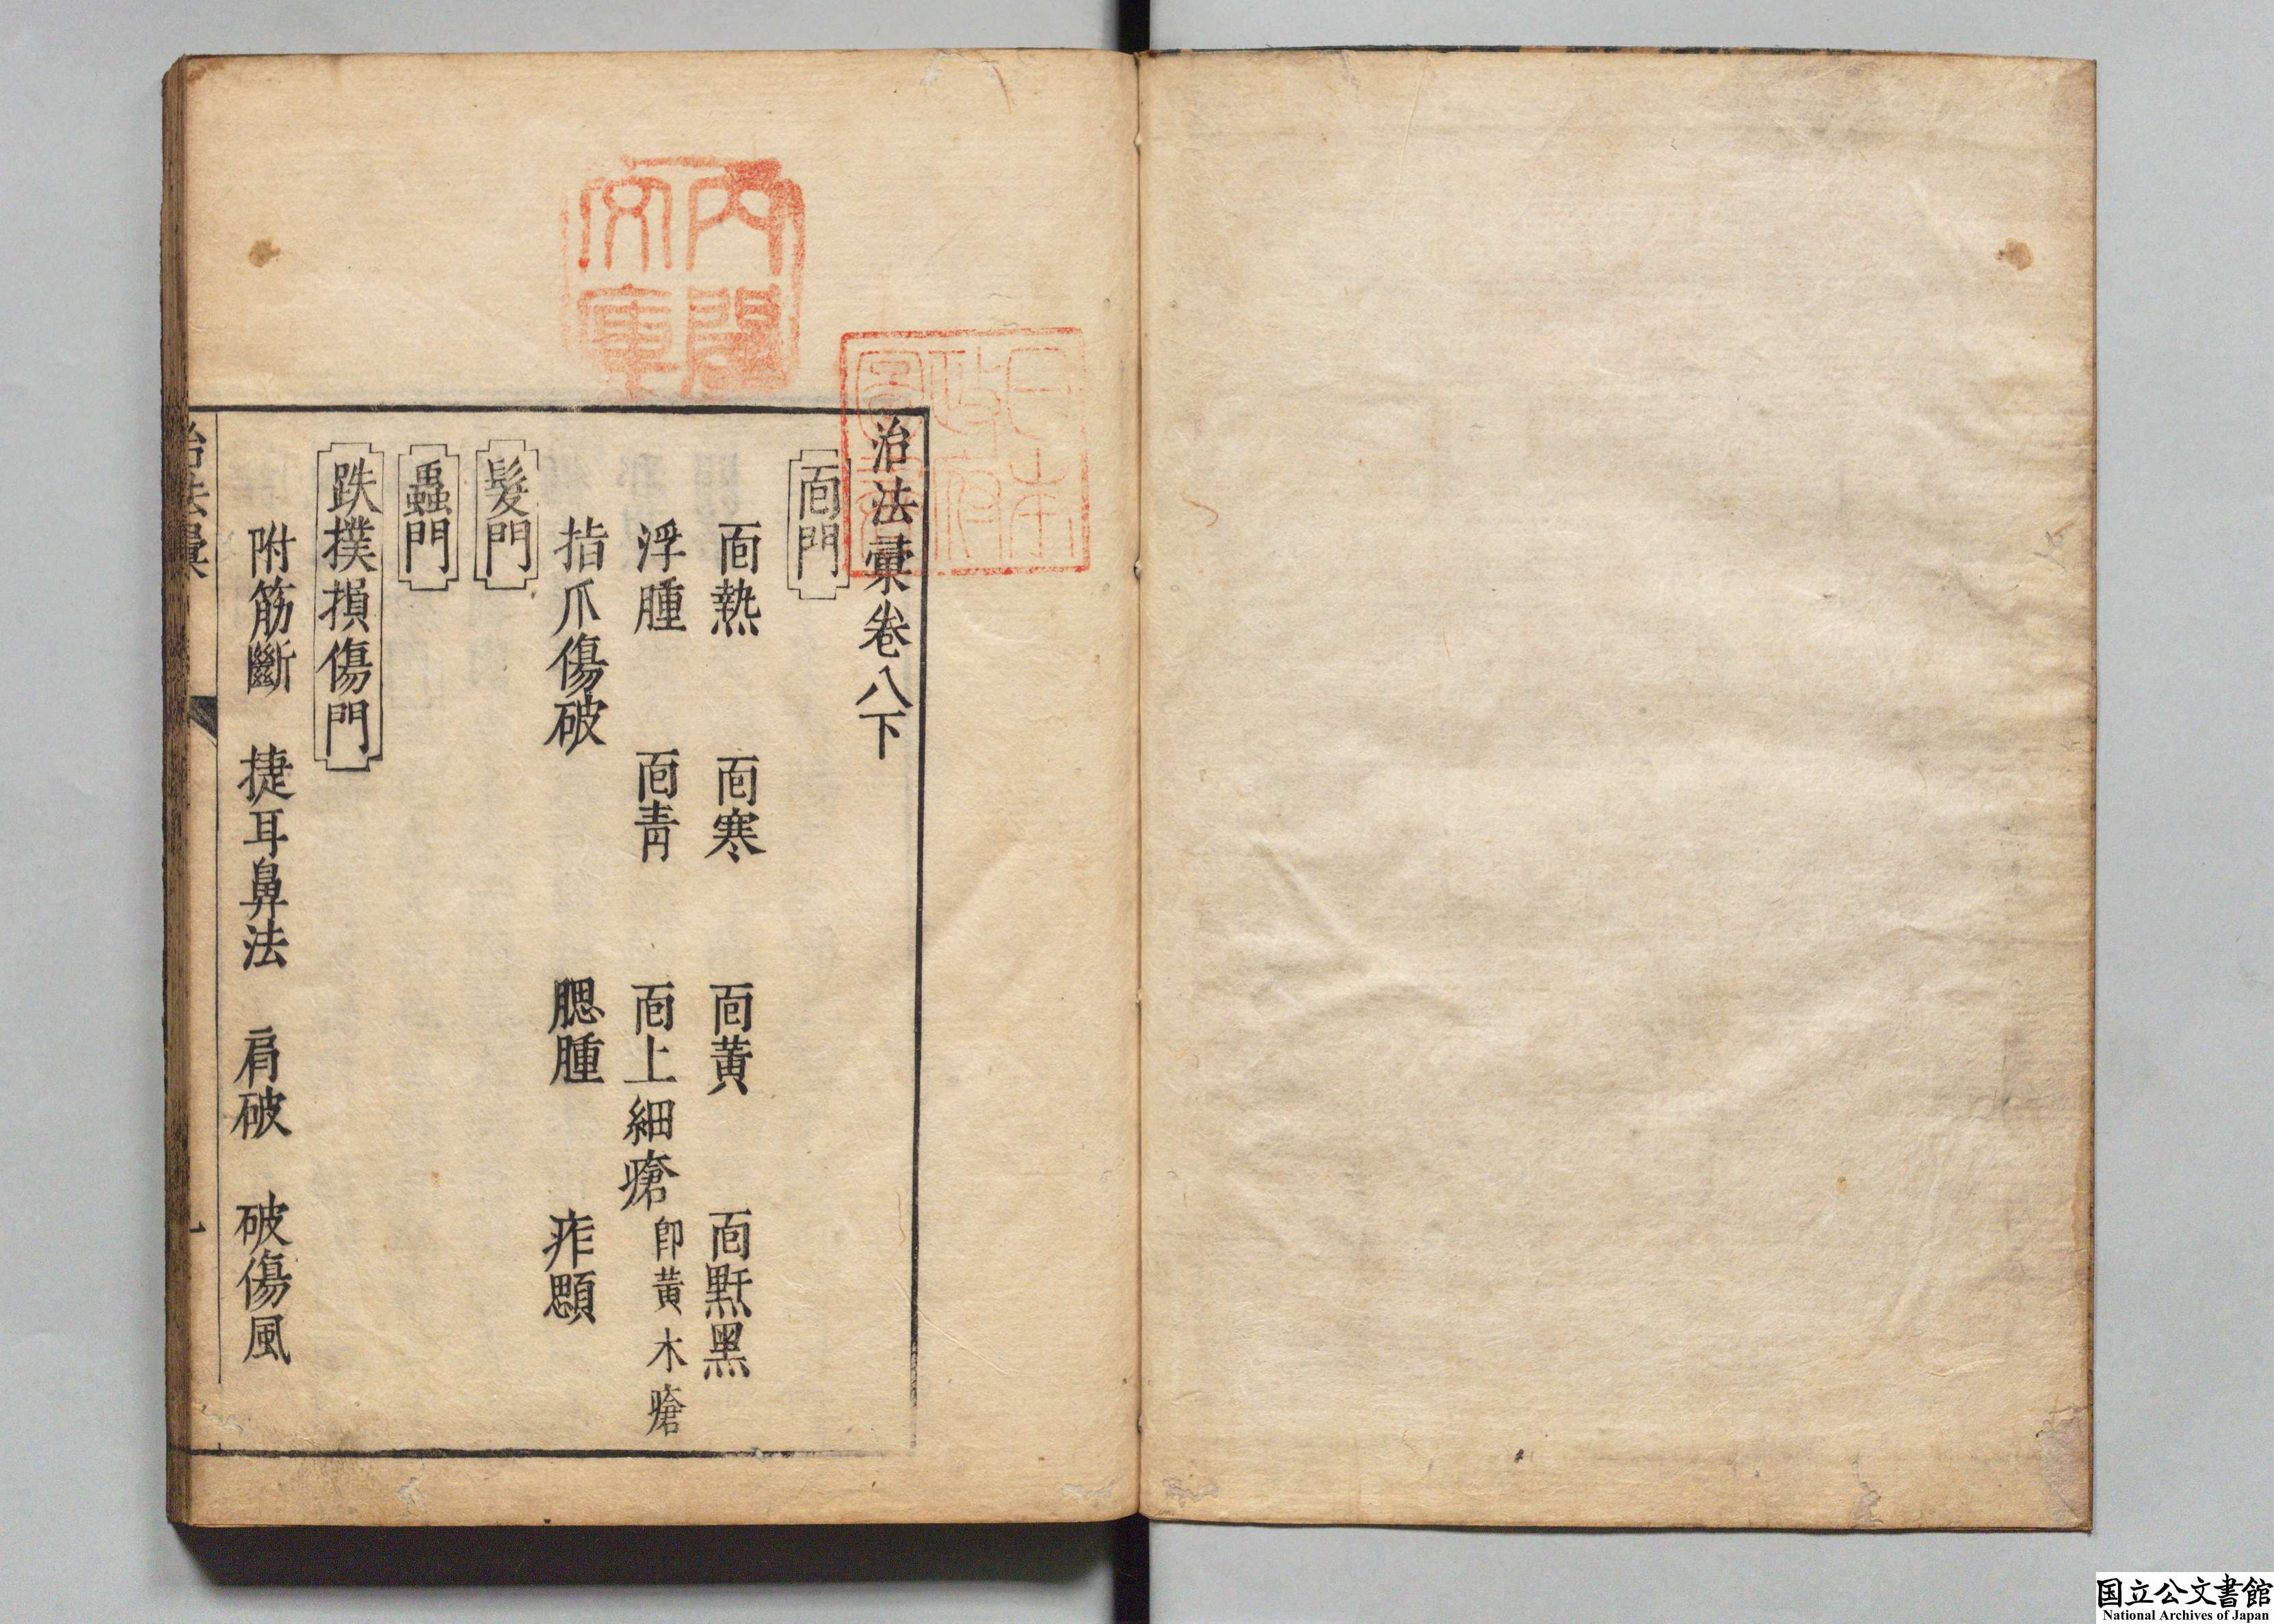 治法彙卷八下
靣門
靣熱 靣寒 靣黄 靣䵟黑
浮腫 靣青 靣上細瘡 即黄木瘡
指爪傷破 腮腫 痄顋
髮門
蠱門
跌撲損傷門
附筋斷 捷耳鼻法 肩破 破傷風
治法彙
内閣文庫
日本政府圖書
国立公文書館
National Archives of Japan